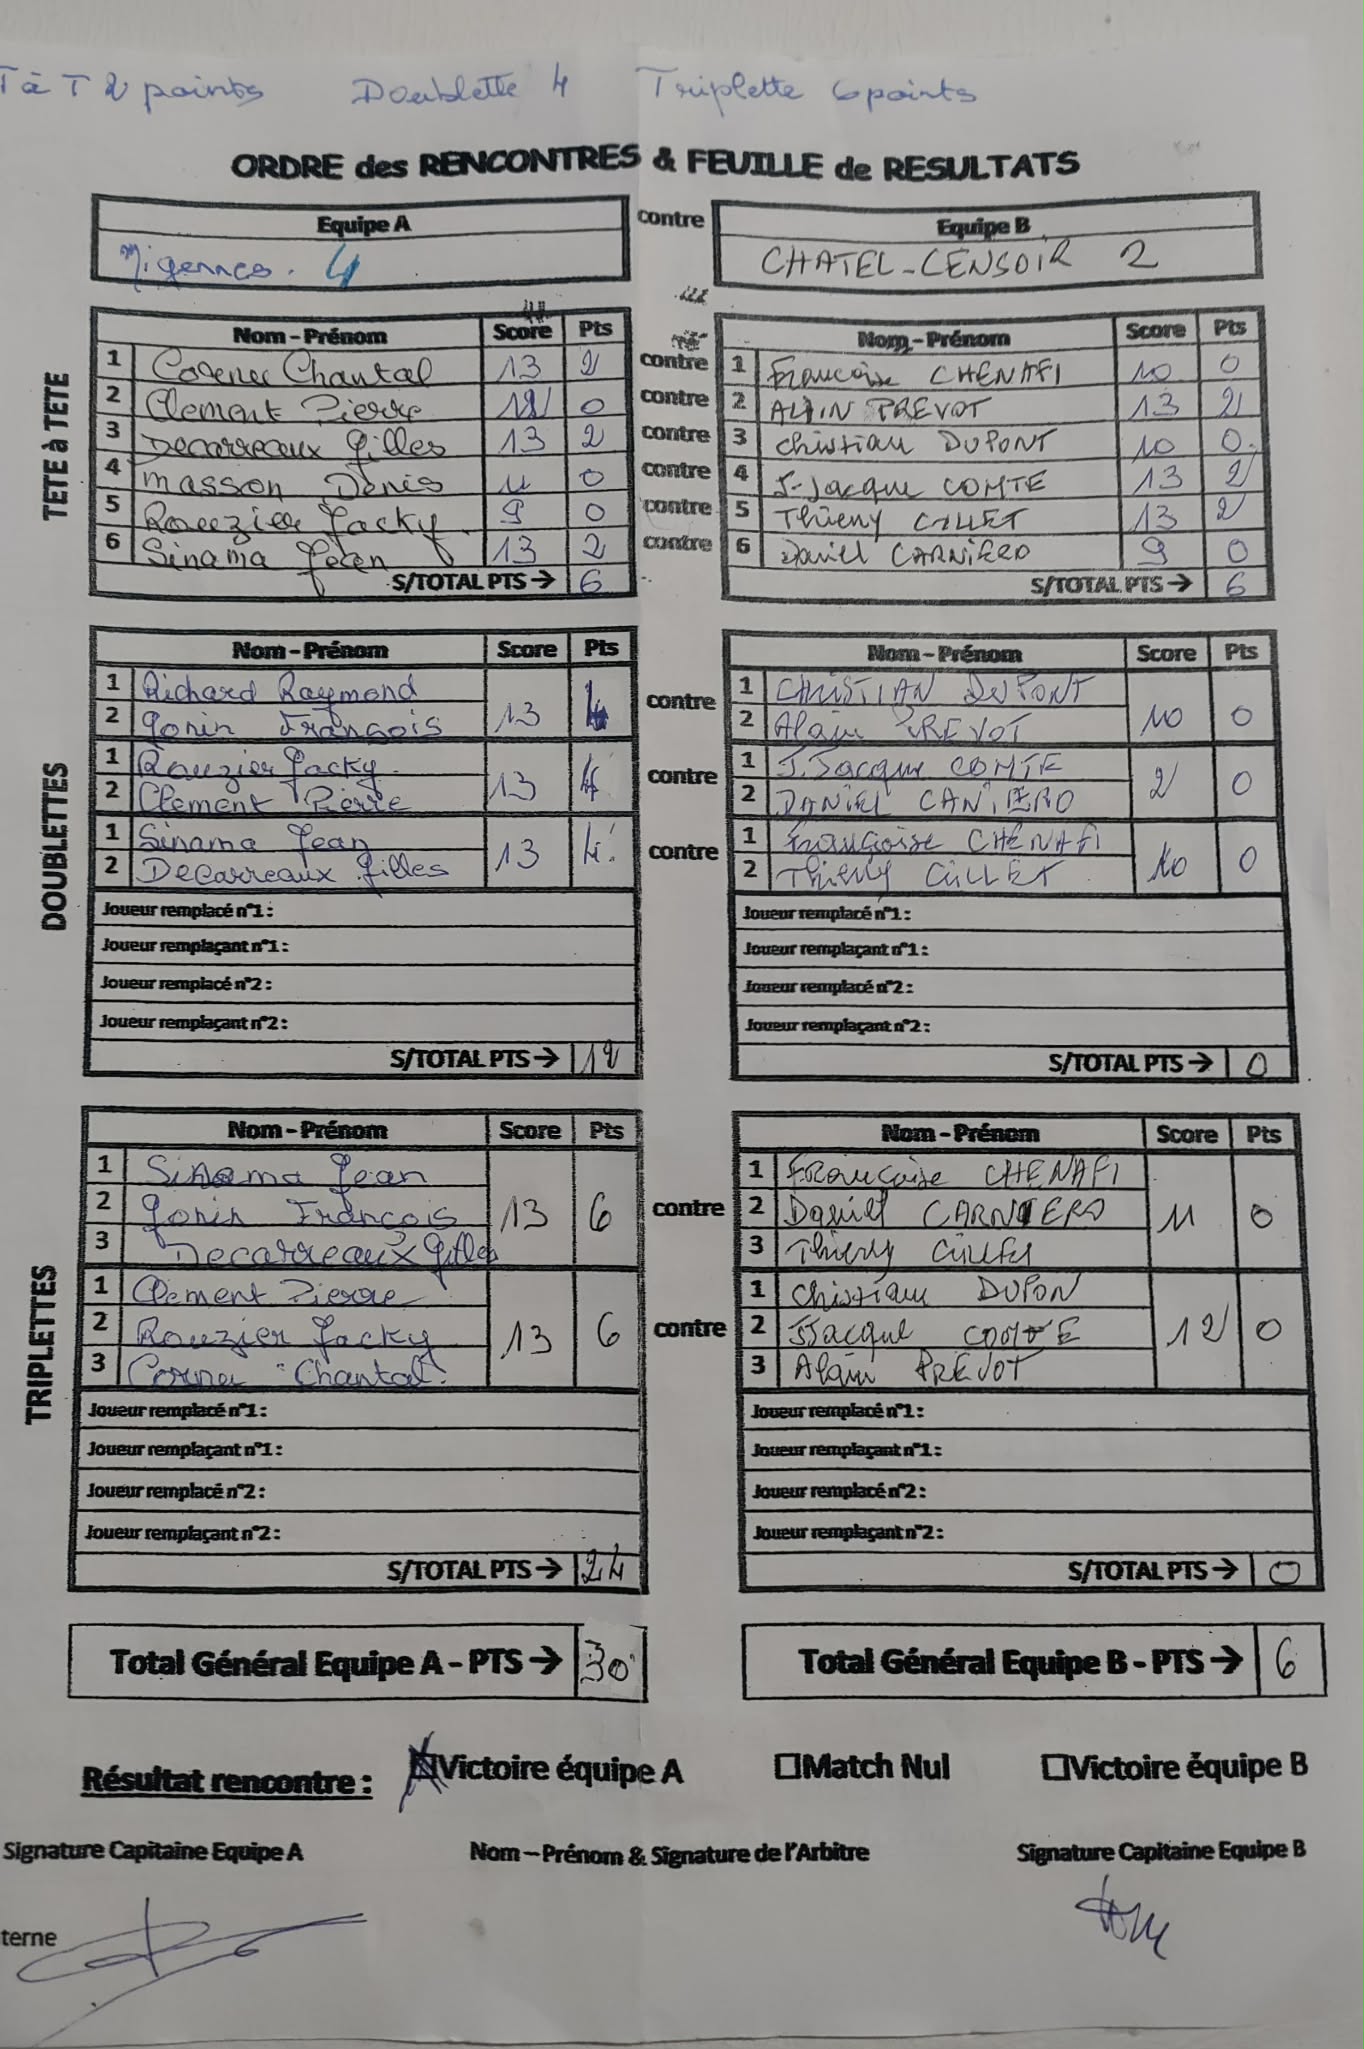 T à T 2 points Doublette 4 Triplette 6 points
ORDRE des RENCONTRES & FEUILLE de RESULTATS
Equipe A contre Equipe B
Migennes. 4 CHATEL-CENSOIR 2
TETE à TETE
Nom - Prénom Score Pts Nom - Prénom Score Pts
1 Chantal 13 2 contre 1 Françoise CHENAFI 10 0
2 Clement Pierre 12 0 contre 2 ALAIN PREVOT 13 2
3 Decarreaux Gilles 13 2 contre 3 Christian DUPONT 10 0
4 masson Denis 11 0 contre 4 J-Jacque COMTE 13 2
5 Rouzier Jacky 9 0 contre 5 Thierry 13 2
6 Sinama Jean 13 2 contre 6 Daniel CARNIERO 9 0
S/TOTAL PTS → 6 S/TOTAL PTS → 6
DOUBLETTES
Nom - Prénom Score Pts Nom - Prénom Score Pts
1 Richard Raymond contre 1 CHRISTIAN DUPONT
2 Gonin François 13 4 2 Alain PREVOT 10 0
1 Rouzier Jacky contre 1 J.Jacque COMTE
2 Clement Pierre 13 4 2 DANIEL CANIERO 2 0
1 Sinama Jean contre 1 Françoise CHENAFI
2 Decarreaux Gilles 13 4 2 Thierry 10 0
Joueur remplacé n°1 : Joueur remplacé n°1 :
Joueur remplaçant n°1 : Joueur remplaçant n°1 :
Joueur remplacé n°2 : Joueur remplacé n°2 :
Joueur remplaçant n°2 : Joueur remplaçant n°2 :
S/TOTAL PTS → 12 S/TOTAL PTS → 0
TRIPLETTES
Nom - Prénom Score Pts Nom - Prénom Score Pts
1 Sinama Jean 1 Françoise CHENAFI
2 Gonin François 13 6 contre 2 Daniel CARNIERO 11 0
3 Decarreaux Gilles 3 Thierry
1 Clement Pierre 1 Christian DUPON
2 Rouzier Jacky 13 6 contre 2 JJacque COMTE 12 0
3 Chantal 3 Alain PREVOT
Joueur remplacé n°1 : Joueur remplacé n°1 :
Joueur remplaçant n°1 : Joueur remplaçant n°1 :
Joueur remplacé n°2 : Joueur remplacé n°2 :
Joueur remplaçant n°2 : Joueur remplaçant n°2 :
S/TOTAL PTS → 24 S/TOTAL PTS → 0
Total Général Equipe A - PTS → 30 Total Général Equipe B - PTS → 6
Résultat rencontre : ☒Victoire équipe A ☐Match Nul ☐Victoire équipe B
Signature Capitaine Equipe A Nom – Prénom & Signature de l'Arbitre Signature Capitaine Equipe B
terne